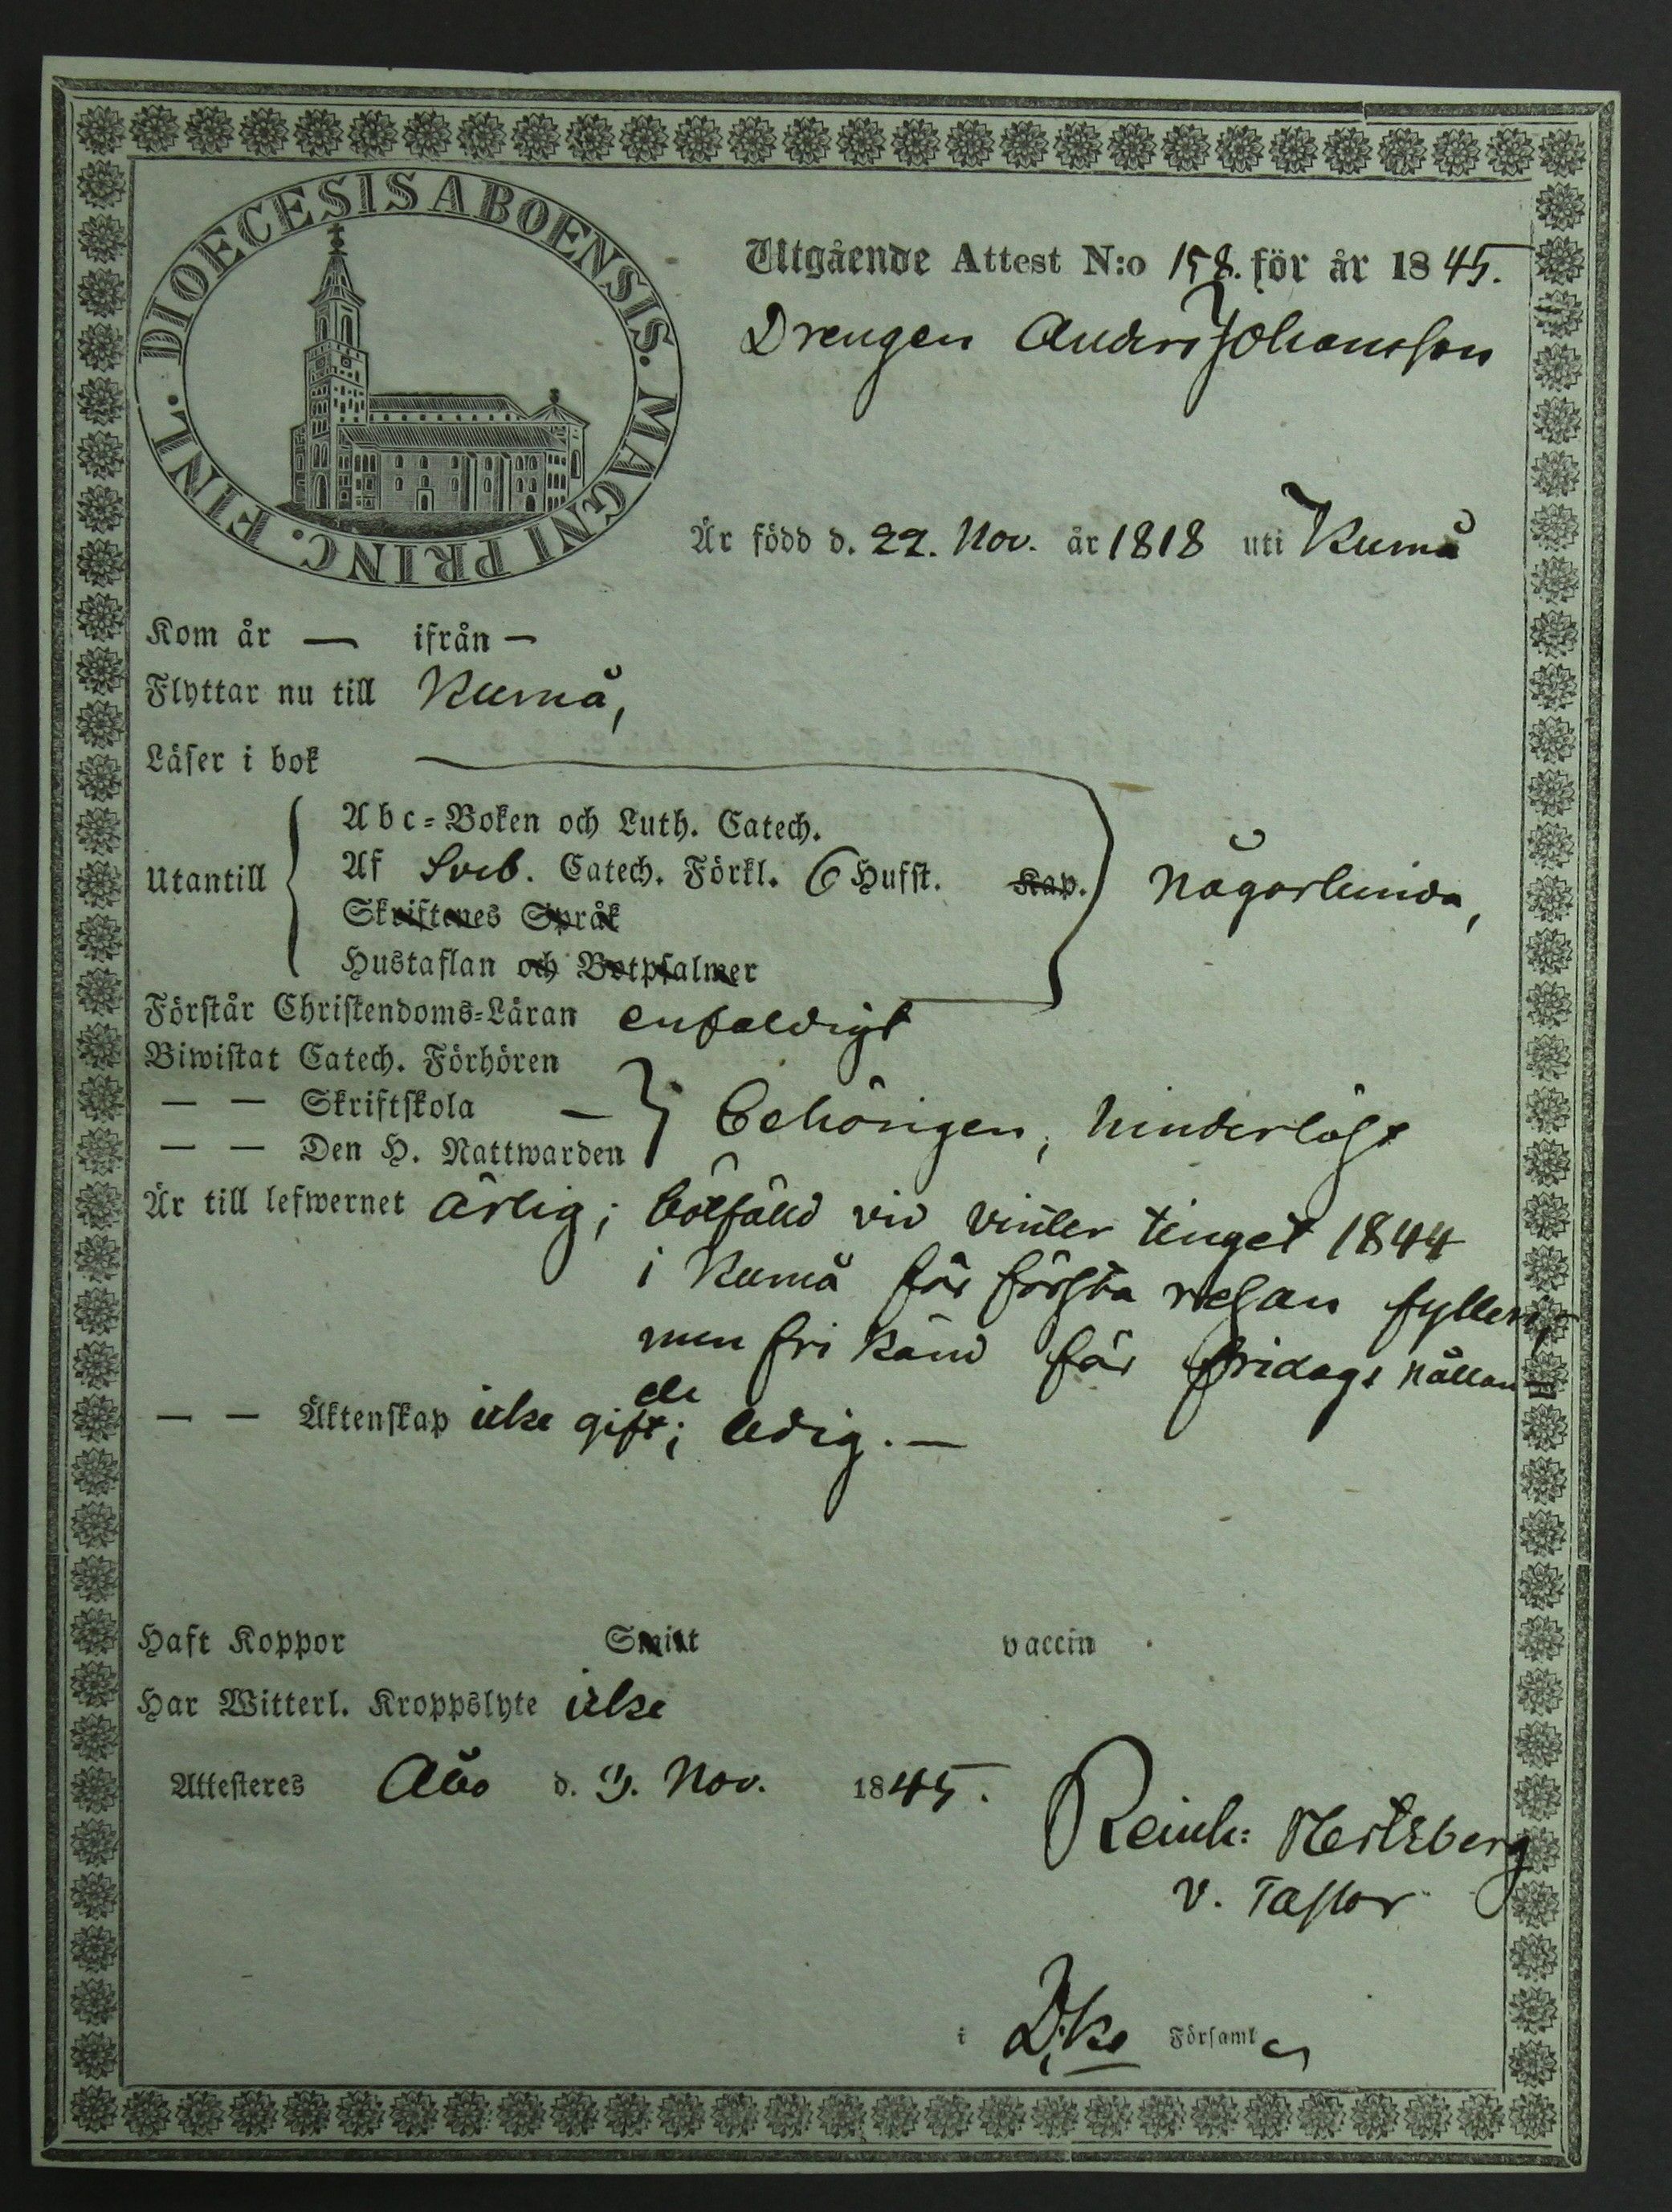 DIOECESIS ABOENSIS. MAGNI PRINC. FINL.
Utgående Attest N:o 158. för år 1845.
Drengen Anders Johansson
Är född d. 22. Nov. år 1818 uti Kumå
Kom år — ifrån —
Flyttar nu till Kumå,
Läser i bok
Abc-Boken och Luth. Catech.
Utantill Af Sveb. Catech. Förkl. 6 Hufst. Kap. någorlunda,
Skriftenes Språk
Hustaflan och Botpsalmer
Förstår Christendoms-Läran enfaldigt
Biwistat Catech. Förhören
— — Skriftskola — behörigen, hinderlöst
— — Den H. Nattwarden
Är till lefwernet ärlig; bötfälld vid vinter tinget 1844
i Kumå för första resan fylleri,
men fri känd för fridags
— — Äktenskap icke gift; ledig. —
Haft Koppor Smitt vaccin
Har Witterl. Kroppslyte icke
Attesteres Åbo d. Nov. 1845.
Reinh:
v. Pastor
i Församl